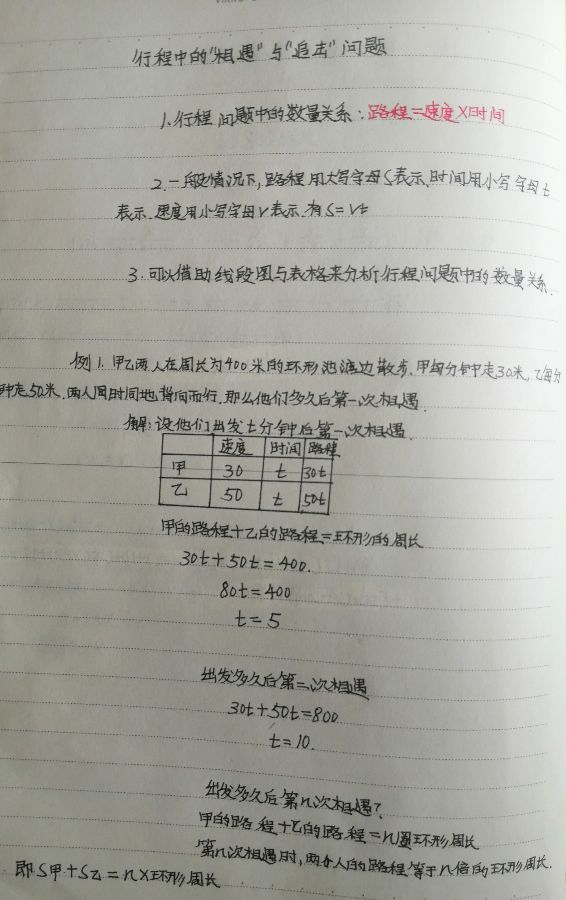 行程中的"相遇"与"追击"问题
1.行程问题中的数量关系:路程=速度×时间
2.一般情况下,路程用大写字母S表示、时间用小写字母t
表示、速度用小写字母v表示.有S=vt
3.可以借助线段图与表格来分析行程问题中的数量关系.
例1.甲乙两人在周长为400米的环形池塘边散步.甲每分钟走30米,乙每分
钟走50米.两人同时同地背向而行.那么他们多久后第一次相遇.
解:设他们出发t分钟后第一次相遇.
速度 时间 路程
甲 30 t 30t
乙 50 t 50t
甲的路程+乙的路程=环形的周长
30t+50t=400.
80t=400
t=5
出发多久后第二次相遇
30t+50t=800
t=10.
出发多久后第n次相遇?
甲的路程+乙的路程=n圈环形周长
第n次相遇时,两个人的路程等于n倍的环形周长.
即S甲+S乙=n×环形周长